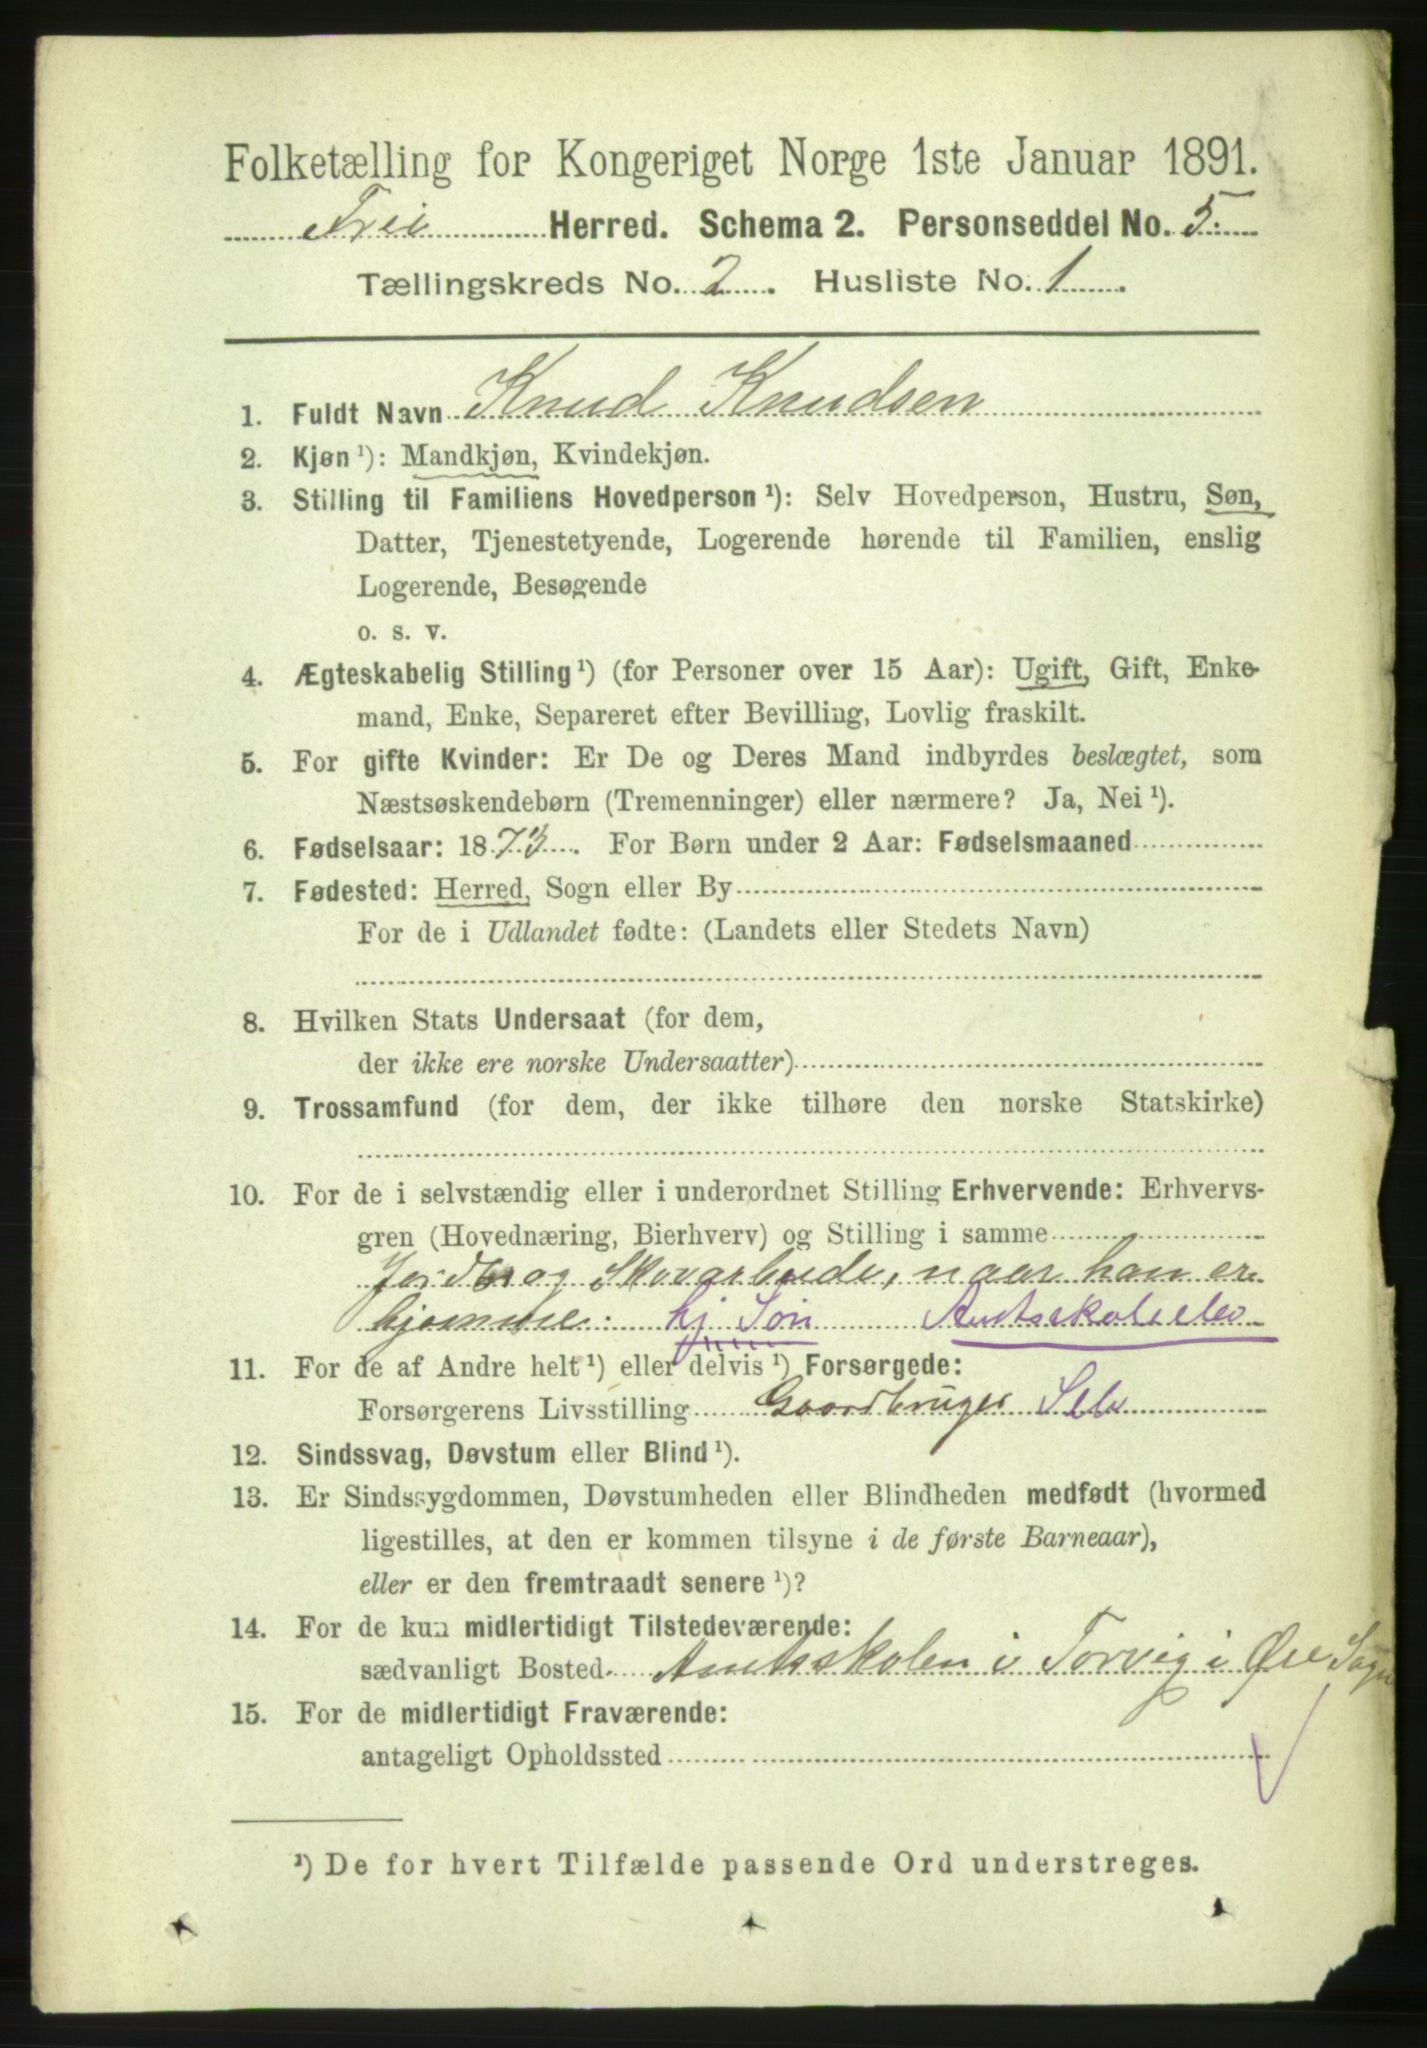 Folketælling for Kongeriget Norge 1ste Januar 1891.
Frei Herred. Schema 2. Personseddel No. 5.
Tællingskreds No. 2. Husliste No. 1.
1. Fuldt Navn Knud Knudsen
2. Kjøn ¹): Mandkjøn, Kvindekjøn.
3. Stilling til Familiens Hovedperson ¹): Selv Hovedperson, Hustru, Søn,
Datter, Tjenestetyende, Logerende hørende til Familien, enslig
Logerende, Besøgende
o. s. v.
4. Ægteskabelig Stilling ¹) (for Personer over 15 Aar): Ugift, Gift, Enke-
mand, Enke, Separeret efter Bevilling, Lovlig fraskilt.
5. For gifte Kvinder: Er De og Deres Mand indbyrdes beslægtet, som
Næstsøskendebørn (Tremenninger) eller nærmere? Ja, Nei ¹).
6. Fødselsaar: 1873. For Børn under 2 Aar: Fødselsmaaned
7. Fødested: Herred, Sogn eller By
For de i Udlandet fødte: (Landets eller Stedets Navn)
8. Hvilken Stats Undersaat (for dem,
der ikke ere norske Undersaatter)
9. Trossamfund (for dem, der ikke tilhøre den norske Statskirke)
10. For de i selvstændig eller i underordnet Stilling Erhvervende: Erhvervs-
gren (Hovednæring, Bierhverv) og Stilling i samme
Jordbr og Skovarbeide, naar han er
hjemme. hj Søn Amtsskoleelev
11. For de af Andre helt ¹) eller delvis ¹) Forsørgede:
Forsørgerens Livsstilling Gaardbruger Selv
12. Sindssvag, Døvstum eller Blind ¹).
13. Er Sindssygdommen, Døvstumheden eller Blindheden medfødt (hvormed
ligestilles, at den er kommen tilsyne i de første Barneaar),
eller er den fremtraadt senere ¹)?
14. For de kun midlertidigt Tilstedeværende:
sædvanligt Bosted. Amtsskolen i Torvig i Øre Sogn
15. For de midlertidigt Fraværende:
antageligt Opholdssted
¹) De for hvert Tilfælde passende Ord understreges.